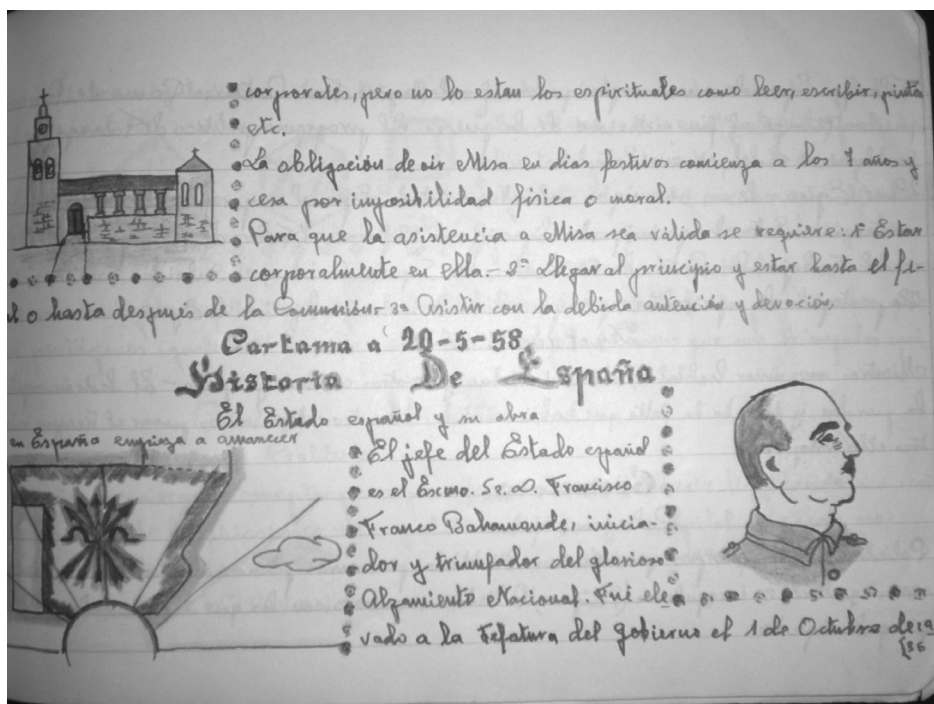 corporales, pero no lo estan los espirituales como leer, escribir, pinta
etc.
La obligación de oir Misa en dias festivos comienza a los 7 años y
cesa por imposibilidad fisica o moral.
Para que la asistencia a Misa sea válida se requiere: 1º Estar
corporalmente en ella.- 2º Llegar al principio y estar hasta el fi-
al o hasta despues de la Comunión- 3º Asistir con la debida autención y devoción.
Cartama a 20-5-58.
Historia De España
El Estado español y su obra
en España empieza a amanecer
El jefe del Estado español
es el Escmo. Sr. D. Francisco
Franco Bahamonde, inicia-
dor y triunfador del glorioso
Alzamiento Nacional. Fui ele
vado a la Jefatura del gobierno el 1 de Octubre de 19
[36